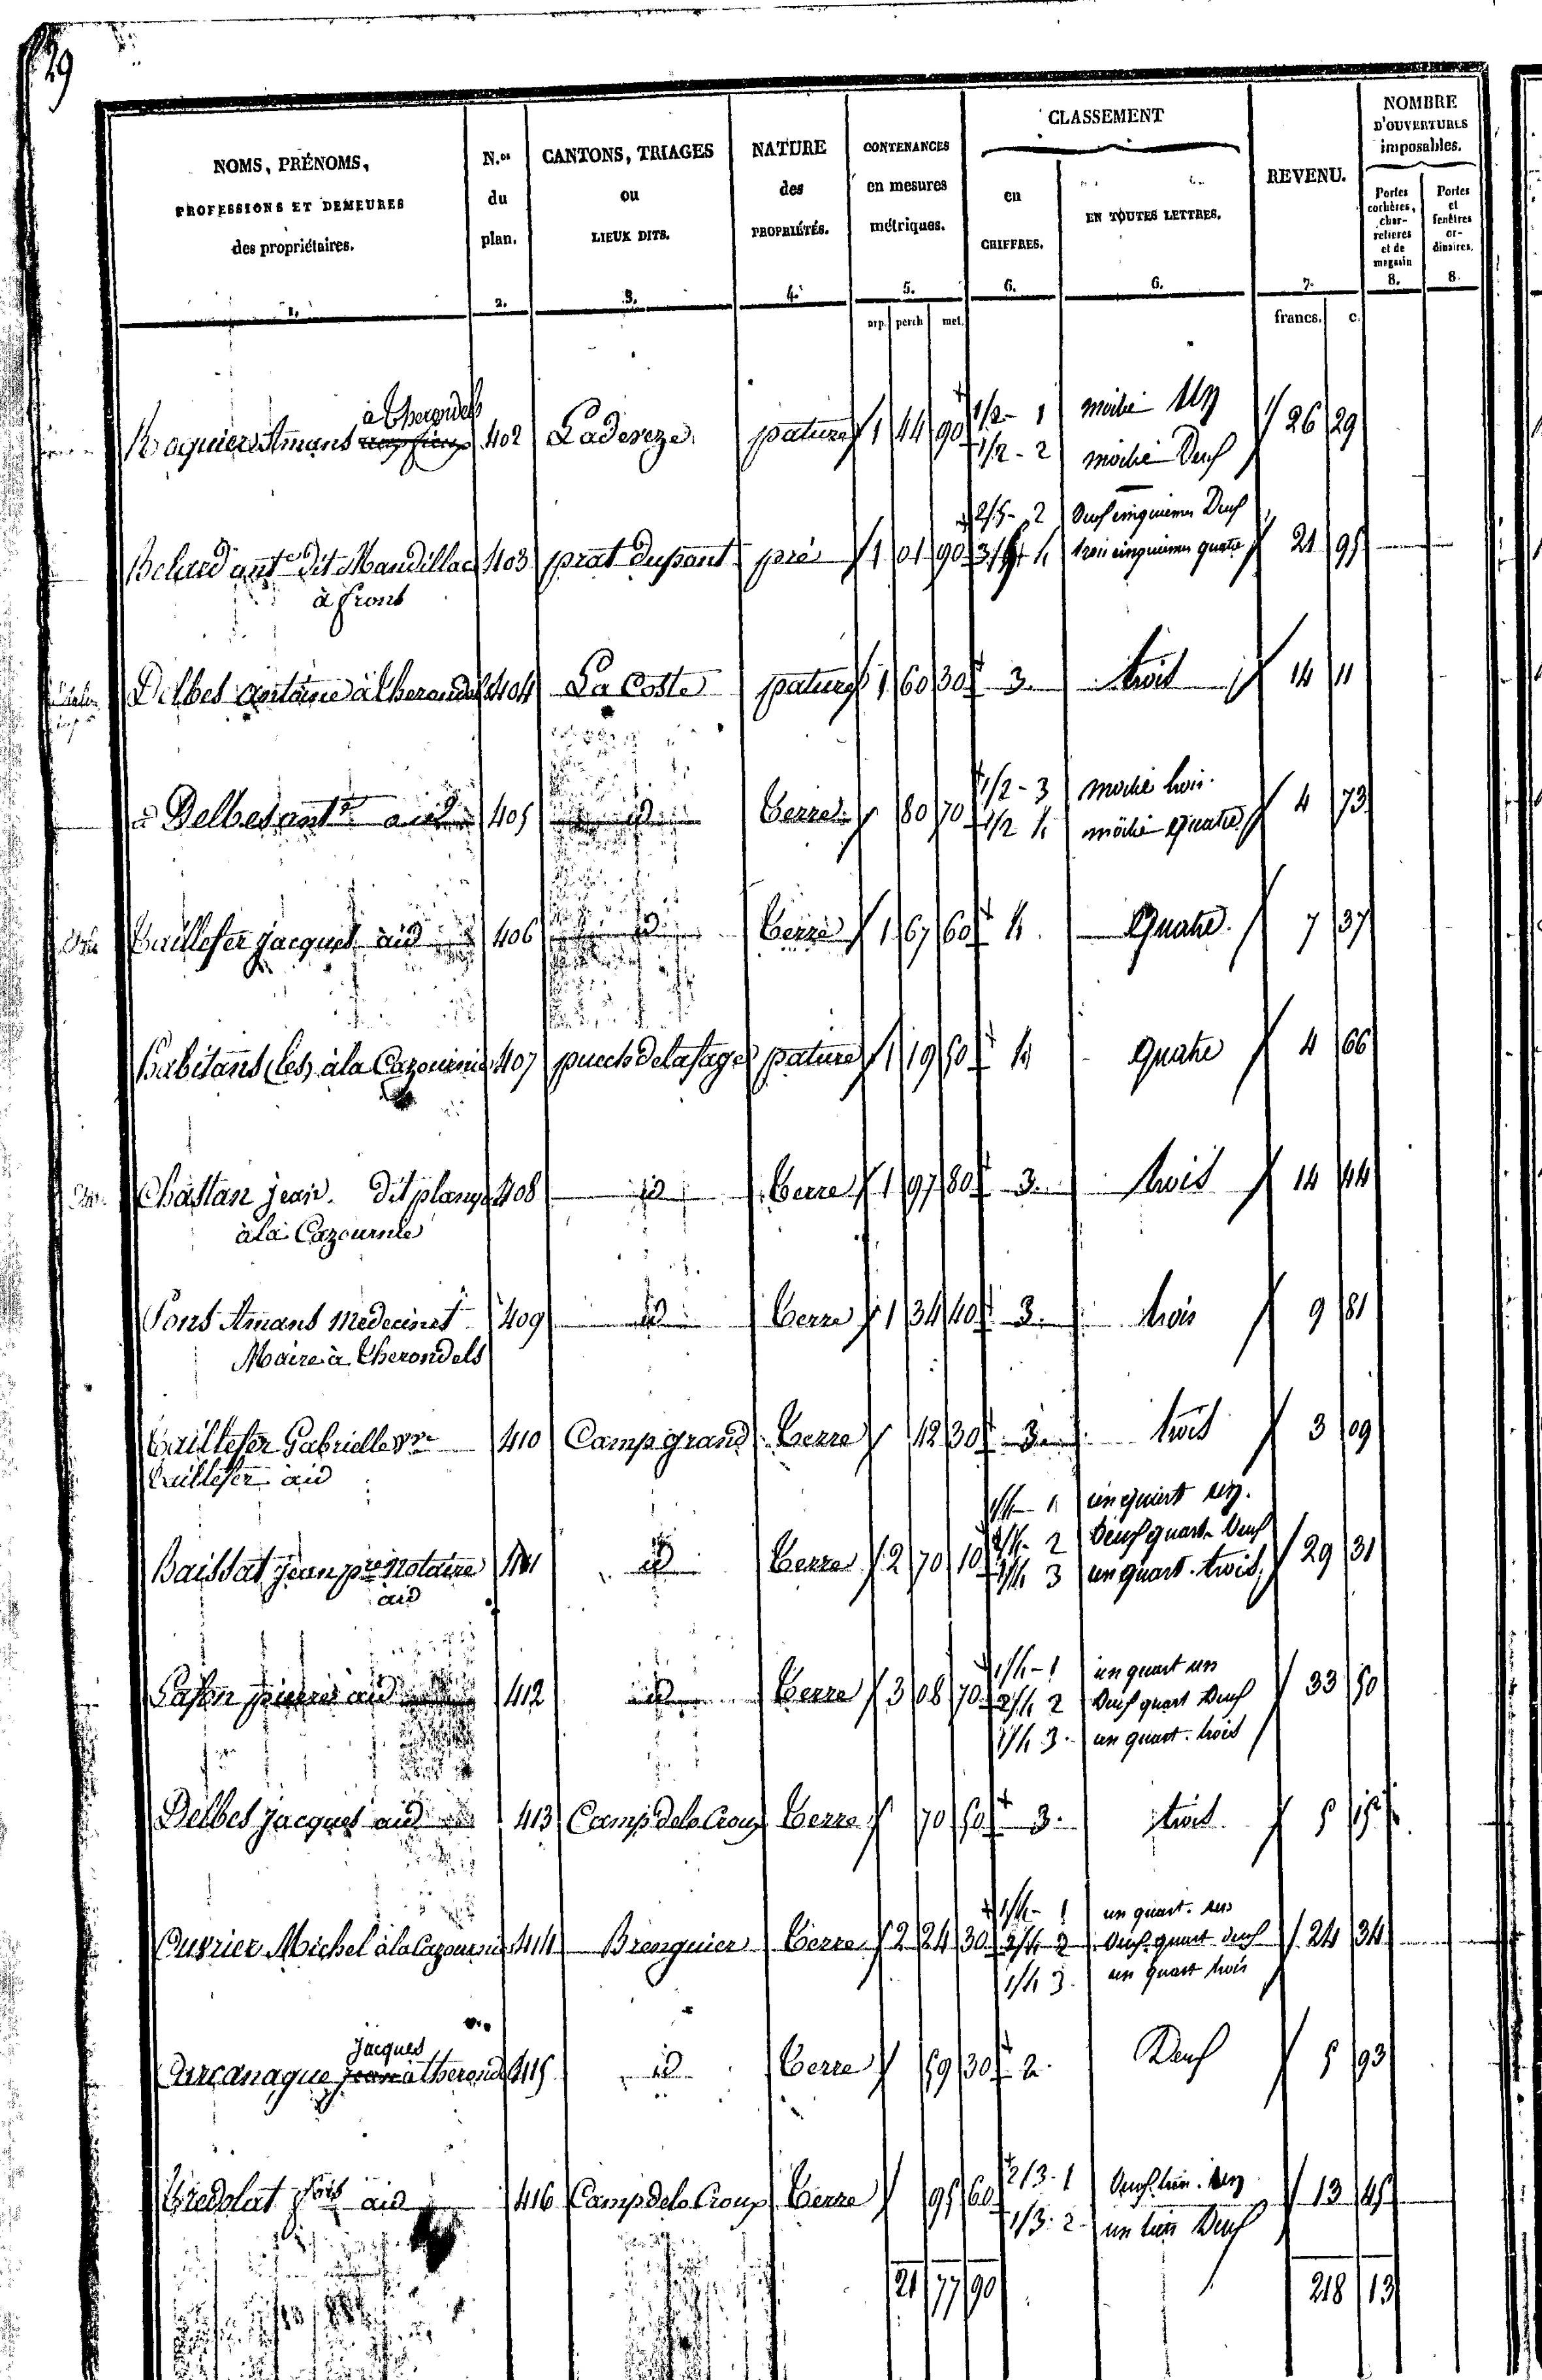 29
NOMS, PRÉNOMS, PROFESSIONS ET DEMEURES des propriétaires. 1.
N.os du plan. 2.
CANTONS, TRIAGES ou LIEUX DITS. 3.
NATURE des PROPRIÉTÉS. 4.
CONTENANCES en mesures métriques. 5.
CLASSEMENT
en CHIFFRES. 6.
EN TOUTES LETTRES. 6.
REVENU. 7.
NOMBRE D'OUVERTURES imposables.
Portes cochères, charretières et de magasin 8.
Portes et fenêtres ordinaires. 8.
arp. perch met. francs. c.
à Therondels
Amans 402 Ladeveze pature 1 44 90 1/2 - 1 moitié un 26 29
1/2 - 2 moitié Deux
2/5 - 2 Deux cinquiemes Deux
antne dit Mandillac 403 prat dupont pré 1 01 90 3/5 4 trois cinquiemes quatre 21 95
à frons
Delbes antoine à therondels 404 La Coste pature 1 60 30 3. trois 14 11
Delbes antne aid 405 id terre 80 70 1/2 - 3 moitié trois 4 73
1/2 4 moitié quatre
Taillefer jacques aid 406 id terre 1 67 60 4 quatre 7 37
habitans (les) à la Cazournie 407 puech delafage pature 1 19 50 4 quatre 4 66
Chastan jean dit 408 id terre 1 97 80 3. trois 14 44
à la Cazournie
Pons Amans Medecin et 409 id terre 1 34 40 3. trois 9 81
Maire à Therondels
Taillefer Gabrielle Vve 410 Camp grand terre 42 30 3. trois 3 09
Taillefer aid
1/4 - 1 un quart un.
Baissat jean pre Notaire 411 id terre 2 70 10 2/4 - 2 Deux quart Deux 29 31
aid 1/4 3 un quart trois
1/4 - 1 un quart un
pierre aid 412 id terre 3 08 70 2/4 2 Deux quart Deux 33 50
1/4 3. un quart trois
Delbes jacques aid 413 Camp dela Croux terre 70 50 3. trois 5 15
1/4 - 1 un quart un
Ouvrier Michel à la Cazournie 414 Brenguier terre 2 24 30 2/4 2 Deux quart deux 24 34
1/4 3. un quart trois
jacques
Curcanague jean à therondels 415 id terre 59 30 2. Deux 5 93
Tredolat fois aid 416 Camp dela Croux terre 95 60 2/3 - 1 Deux tiers un 13 45
1/3 - 2 un tiers Deux
21 77 90 218 13